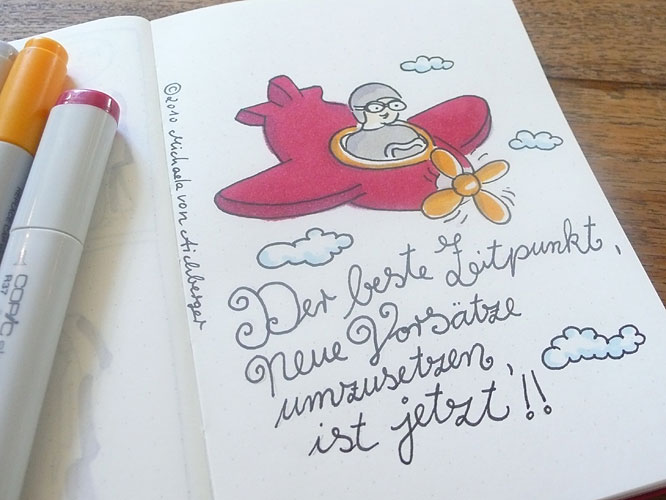 ©2010 Michaela von Aichberger
Der beste Zeitpunkt,
neue Vorsätze
umzusetzen,
ist jetzt!!
COPIC
R37